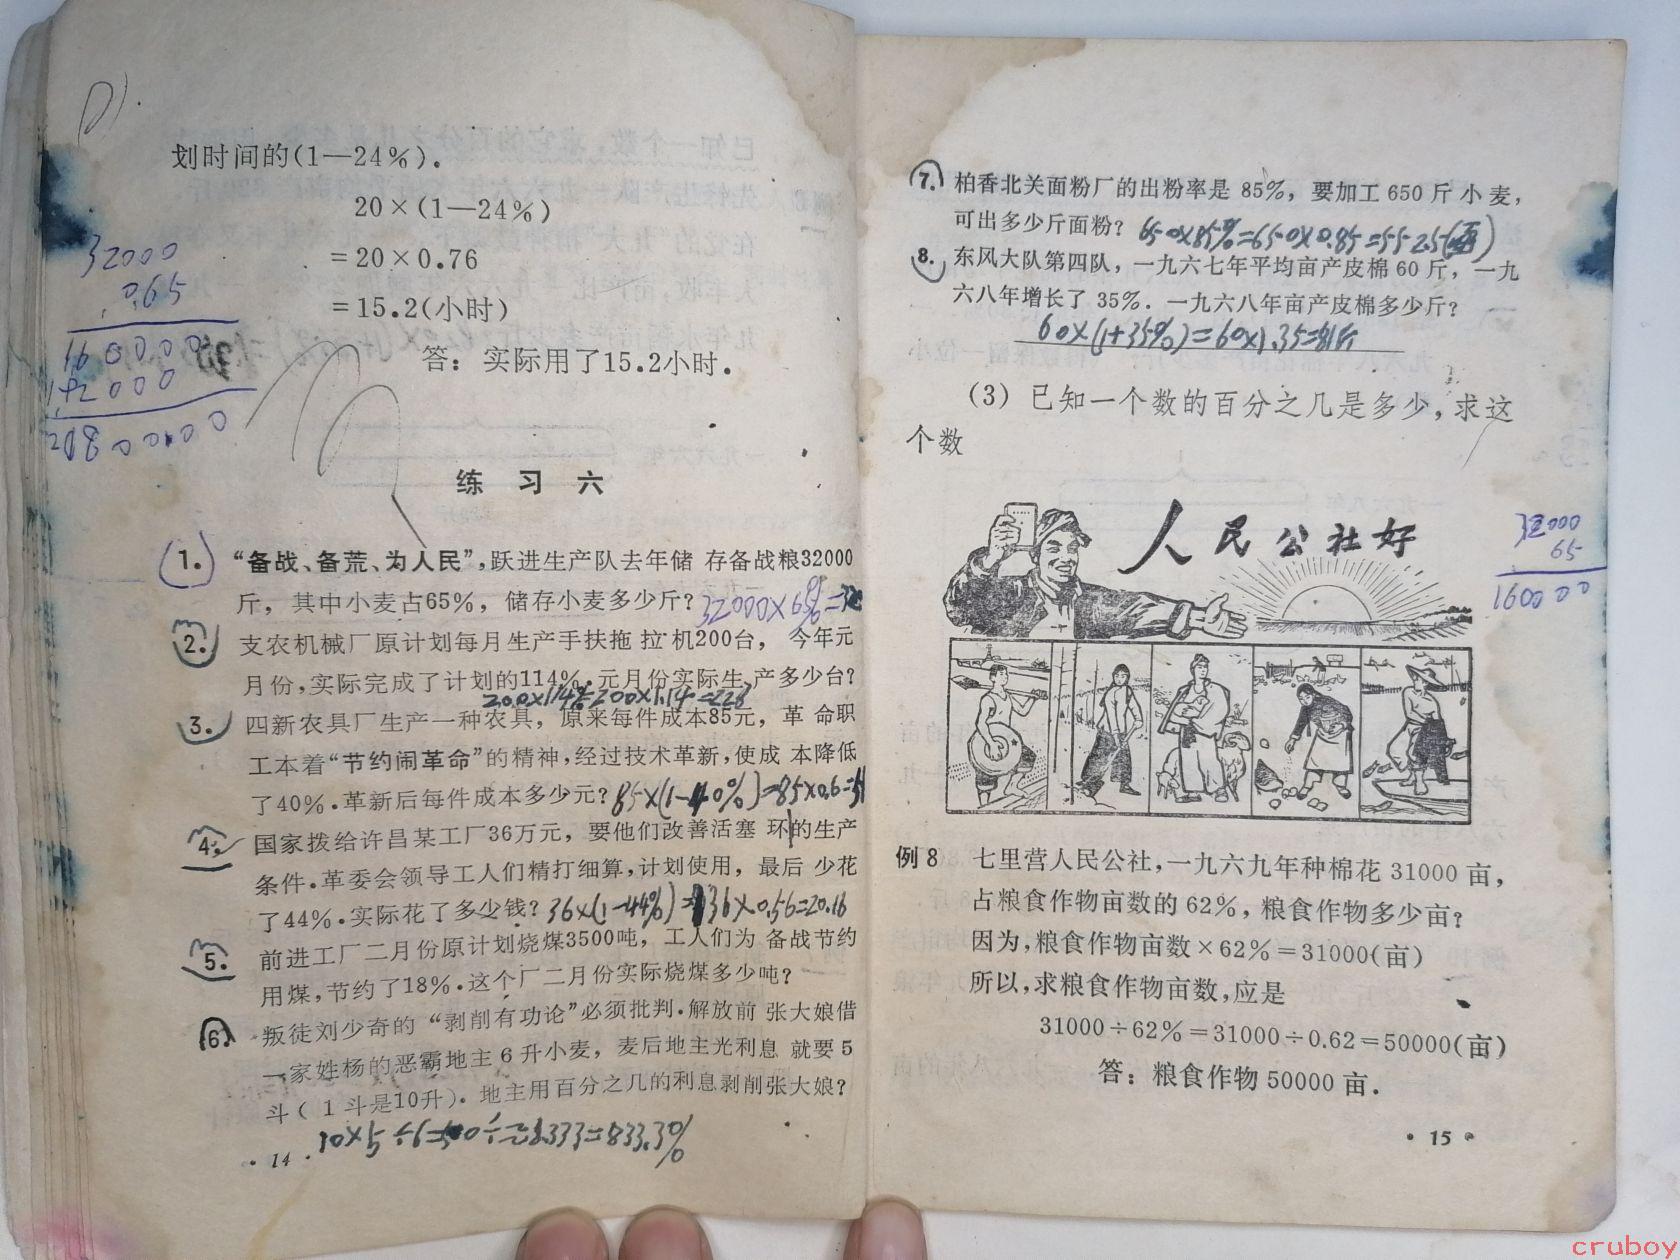 划时间的(1—24%).
20×(1—24%)
=20×0.76
=15.2(小时)
答: 实际用了15.2小时.
32000
0.65
160000
192000
练 习 六
1. “备战、备荒、为人民”,跃进生产队去年储 存备战粮32000
斤, 其中小麦占65%, 储存小麦多少斤? 32000×65%=
2. 支农机械厂原计划每月生产手扶拖 拉 机200台, 今年元
月份,实际完成了计划的114%.元月份实际生 产多少台?
200×114%=200×1.14=228
3. 四新农具厂生产一种农具, 原来每件成本85元, 革 命职
工本着“节约闹革命”的精神,经过技术革新,使成 本降低
了40%.革新后每件成本多少元? 85×(1-40%)=85×0.6=51
4. 国家拨给许昌某工厂36万元, 要他们改善活塞 环的生产
条件.革委会领导工人们精打细算,计划使用, 最后 少花
了44%.实际花了多少钱? 36×(1-44%)=36×0.56=20.16
5. 前进工厂二月份原计划烧煤3500吨, 工人们为 备战节约
用煤,节约了18%.这个厂二月份实际烧煤多少吨?
6. 叛徒刘少奇的 “剥削有功论”必须批判.解放前 张大娘借
一家姓杨的恶霸地主 6 升小麦, 麦后地主光利息 就要 5
斗( 1 斗是10升). 地主用百分之几的利息剥削张大娘?
=833.3%
· 14 ·
7. 柏香北关面粉厂的出粉率是 85%, 要加工 650 斤 小 麦,
可出多少斤面粉? 650×85%=650×0.85=552.5
8. 东风大队第四队, 一九六七年平均亩产皮棉 60 斤, 一九
六八年增长了 35%. 一九六八年亩产皮棉多少斤?
60×(1+35%)=60×1.35=81斤
(3) 已知一个数的百分之几是多少,求这
个数
人民公社好
32000
65
160000
例 8 七里营人民公社,一九六九年种棉花 31000 亩,
占粮食作物亩数的 62%, 粮食作物多少亩?
因为,粮食作物亩数×62%=31000(亩)
所以,求粮食作物亩数,应是
31000÷62%=31000÷0.62=50000(亩)
答: 粮食作物 50000 亩.
· 15 ·
cruboy